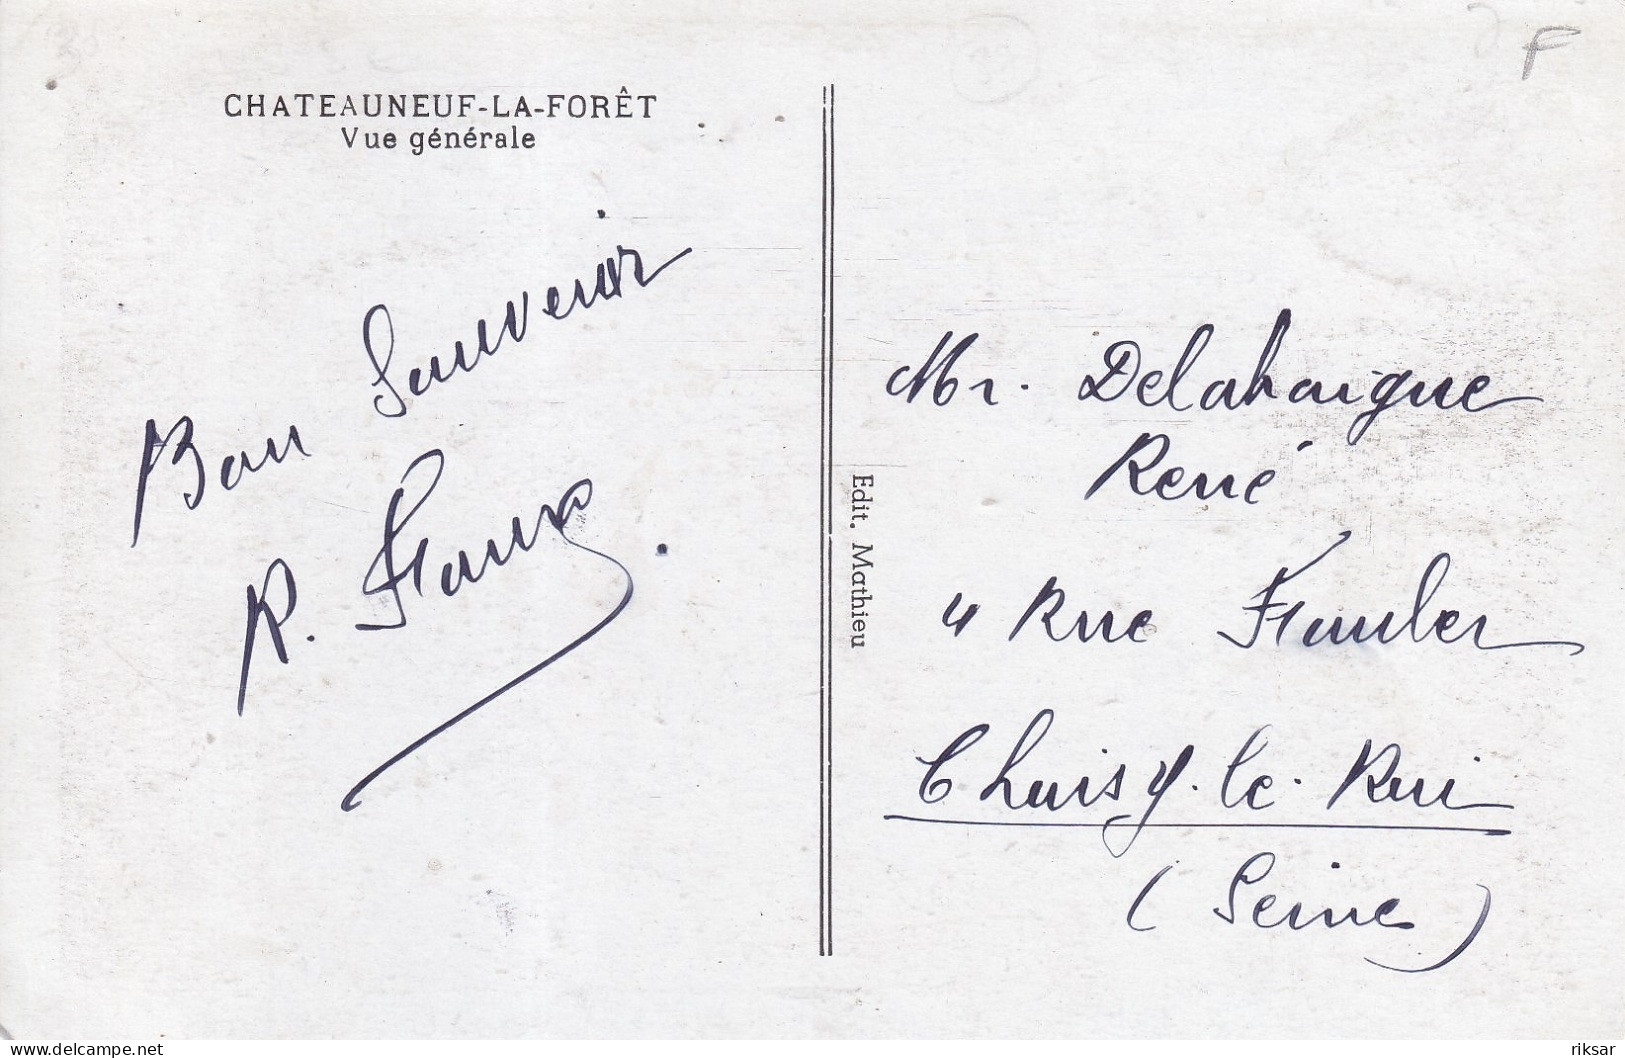 CHATEAUNEUF-LA-FORÊT
Vue générale
F
Bon Souvenir
R.
Edit. Mathieu
Mr. Delahaigue
René
4 Rue
Choisy-le-Roi
(Seine)
delcampe.net
riksar